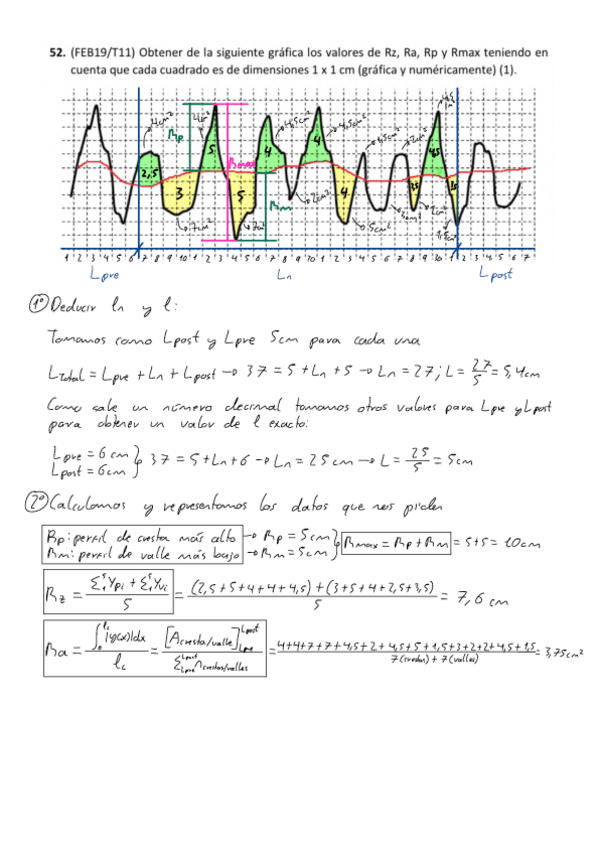 52. (FEB19/T11) Obtener de la siguiente gráfica los valores de Rz, Ra, Rp y Rmax teniendo en
cuenta que cada cuadrado es de dimensiones 1 x 1 cm (gráfica y numéricamente) (1).
4cm² 4cm² 4,5cm² 4,5cm² 1,5cm² 2cm² 4,5
Rp 5 Rmax 4 4 4,5
2,5 3 5 Rm 4 2,5 3,5
7cm² 7cm² 2cm² 5cm² 2cm² 1,5cm²
1 2 3 4 5 6 7 8 9 10 1 2 3 4 5 6 7 8 9 10 1 2 3 4 5 6 7 8 9 10 1 2 3 4 5 6 7
Lpre Ln Lpost
1º Deducir ln y l:
Tomamos como Lpost y Lpre 5cm para cada una
LTotal = Lpre + Ln + Lpost → 37 = 5 + Ln + 5 → Ln = 27; L = 27/5 = 5,4cm
Como sale un número decimal tomamos otros valores para Lpre y Lpost
para obtener un valor de l exacto:
Lpre = 6 cm
Lpost = 6cm } 37 = 5 + Ln + 6 → Ln = 25 cm → L = 25/5 = 5cm
2º Calculamos y representamos los datos que nos piden
Rp: perfil de cresta más alto → Rp = 5cm
Rm: perfil de valle más bajo → Rm = 5cm } Rmax = Rp + Rm = 5+5 = 10cm
Rz = (Σ₁⁵Ypi + Σ₁⁵Yvi)/5 = ((2,5+5+4+4+4,5)+(3+5+4+2,5+3,5))/5 = 7,6 cm
Ra = ∫₀^lc |y(x)|dx / lc = [Acresta/valle]Lpre^Lpost / ΣLpre^Lpost ncrestas/valles = (4+4+7+7+4,5+2+4,5+5+1,5+3+2+2+4,5+1,5)/(7(crestas)+7(valles)) = 3,75cm²